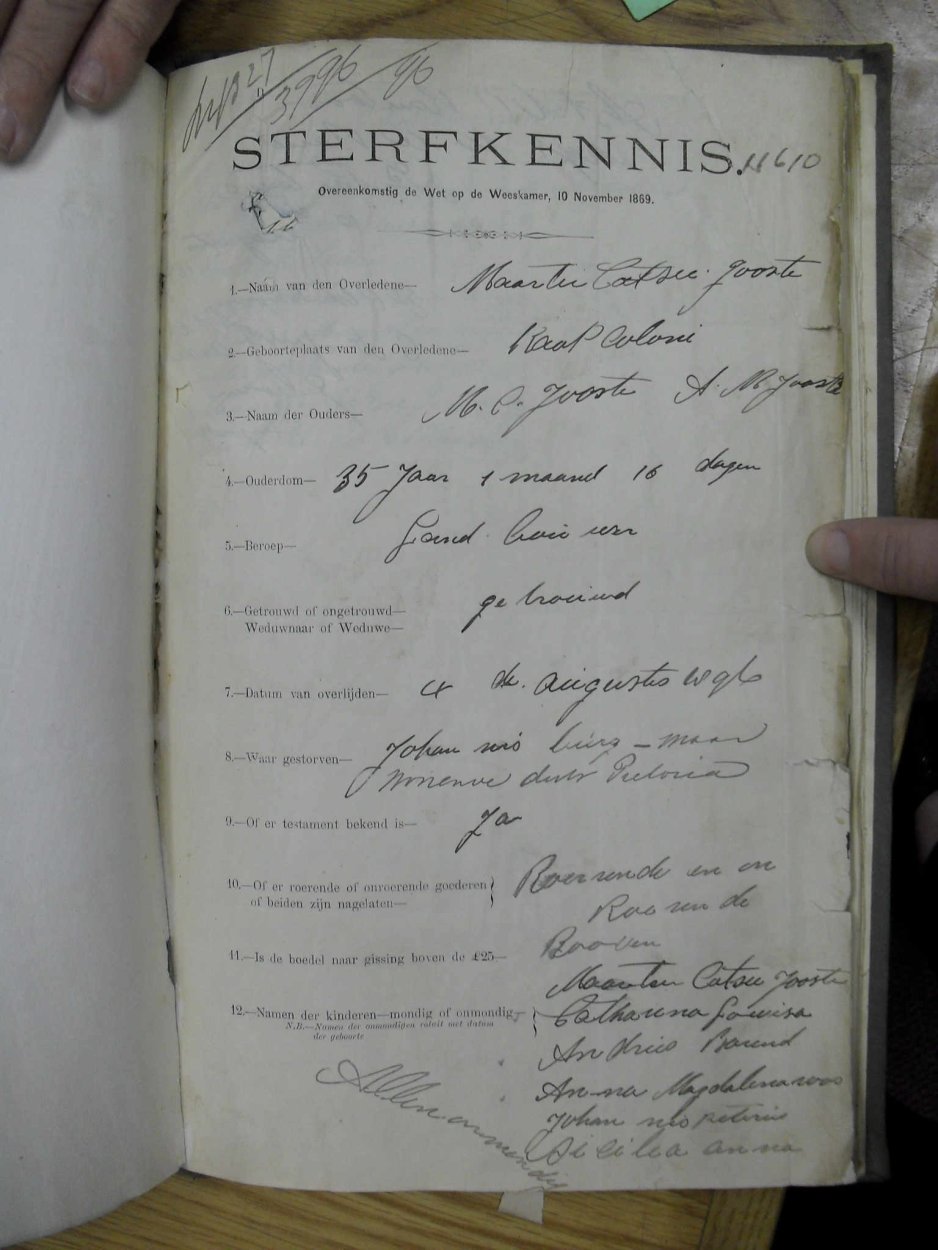 3796/96
STERFKENNIS. 11610
Overeenkomstig de Wet op de Weeskamer, 10 November 1869.
1.—Naam van den Overledene— Maarten Catsee Jooste
2.—Geboorteplaats van den Overledene— Kaap Coloni
3.—Naam der Ouders— M. C. Jooste A. M. Jooste
4.—Ouderdom— 35 Jaar 1 maand 16 dagen
5.—Beroep— Land bouwer
6.—Getrouwd of ongetrouwd— getrouwd
Weduwnaar of Weduwe—
7.—Datum van overlijden— 4 de. augustus 1896
8.—Waar gestorven— Johan nis burg – maar
Pretoria
9.—Of er testament bekend is— Ja
10.—Of er roerende of onroerende goederen } Roerende en on
of beiden zijn nagelaten— Roerende
11.—Is de boedel naar gissing boven de £25— Booven
Maarten Catsee Jooste
12.—Namen der kinderen—mondig of onmondig— Catharina Lowisa
N.B.—Namen der onmondigen voluit met datum
der geboorte
Andries Barend
Anna Magdalena
Johan nis Peterus
Sicilea anna
Allen onmondig